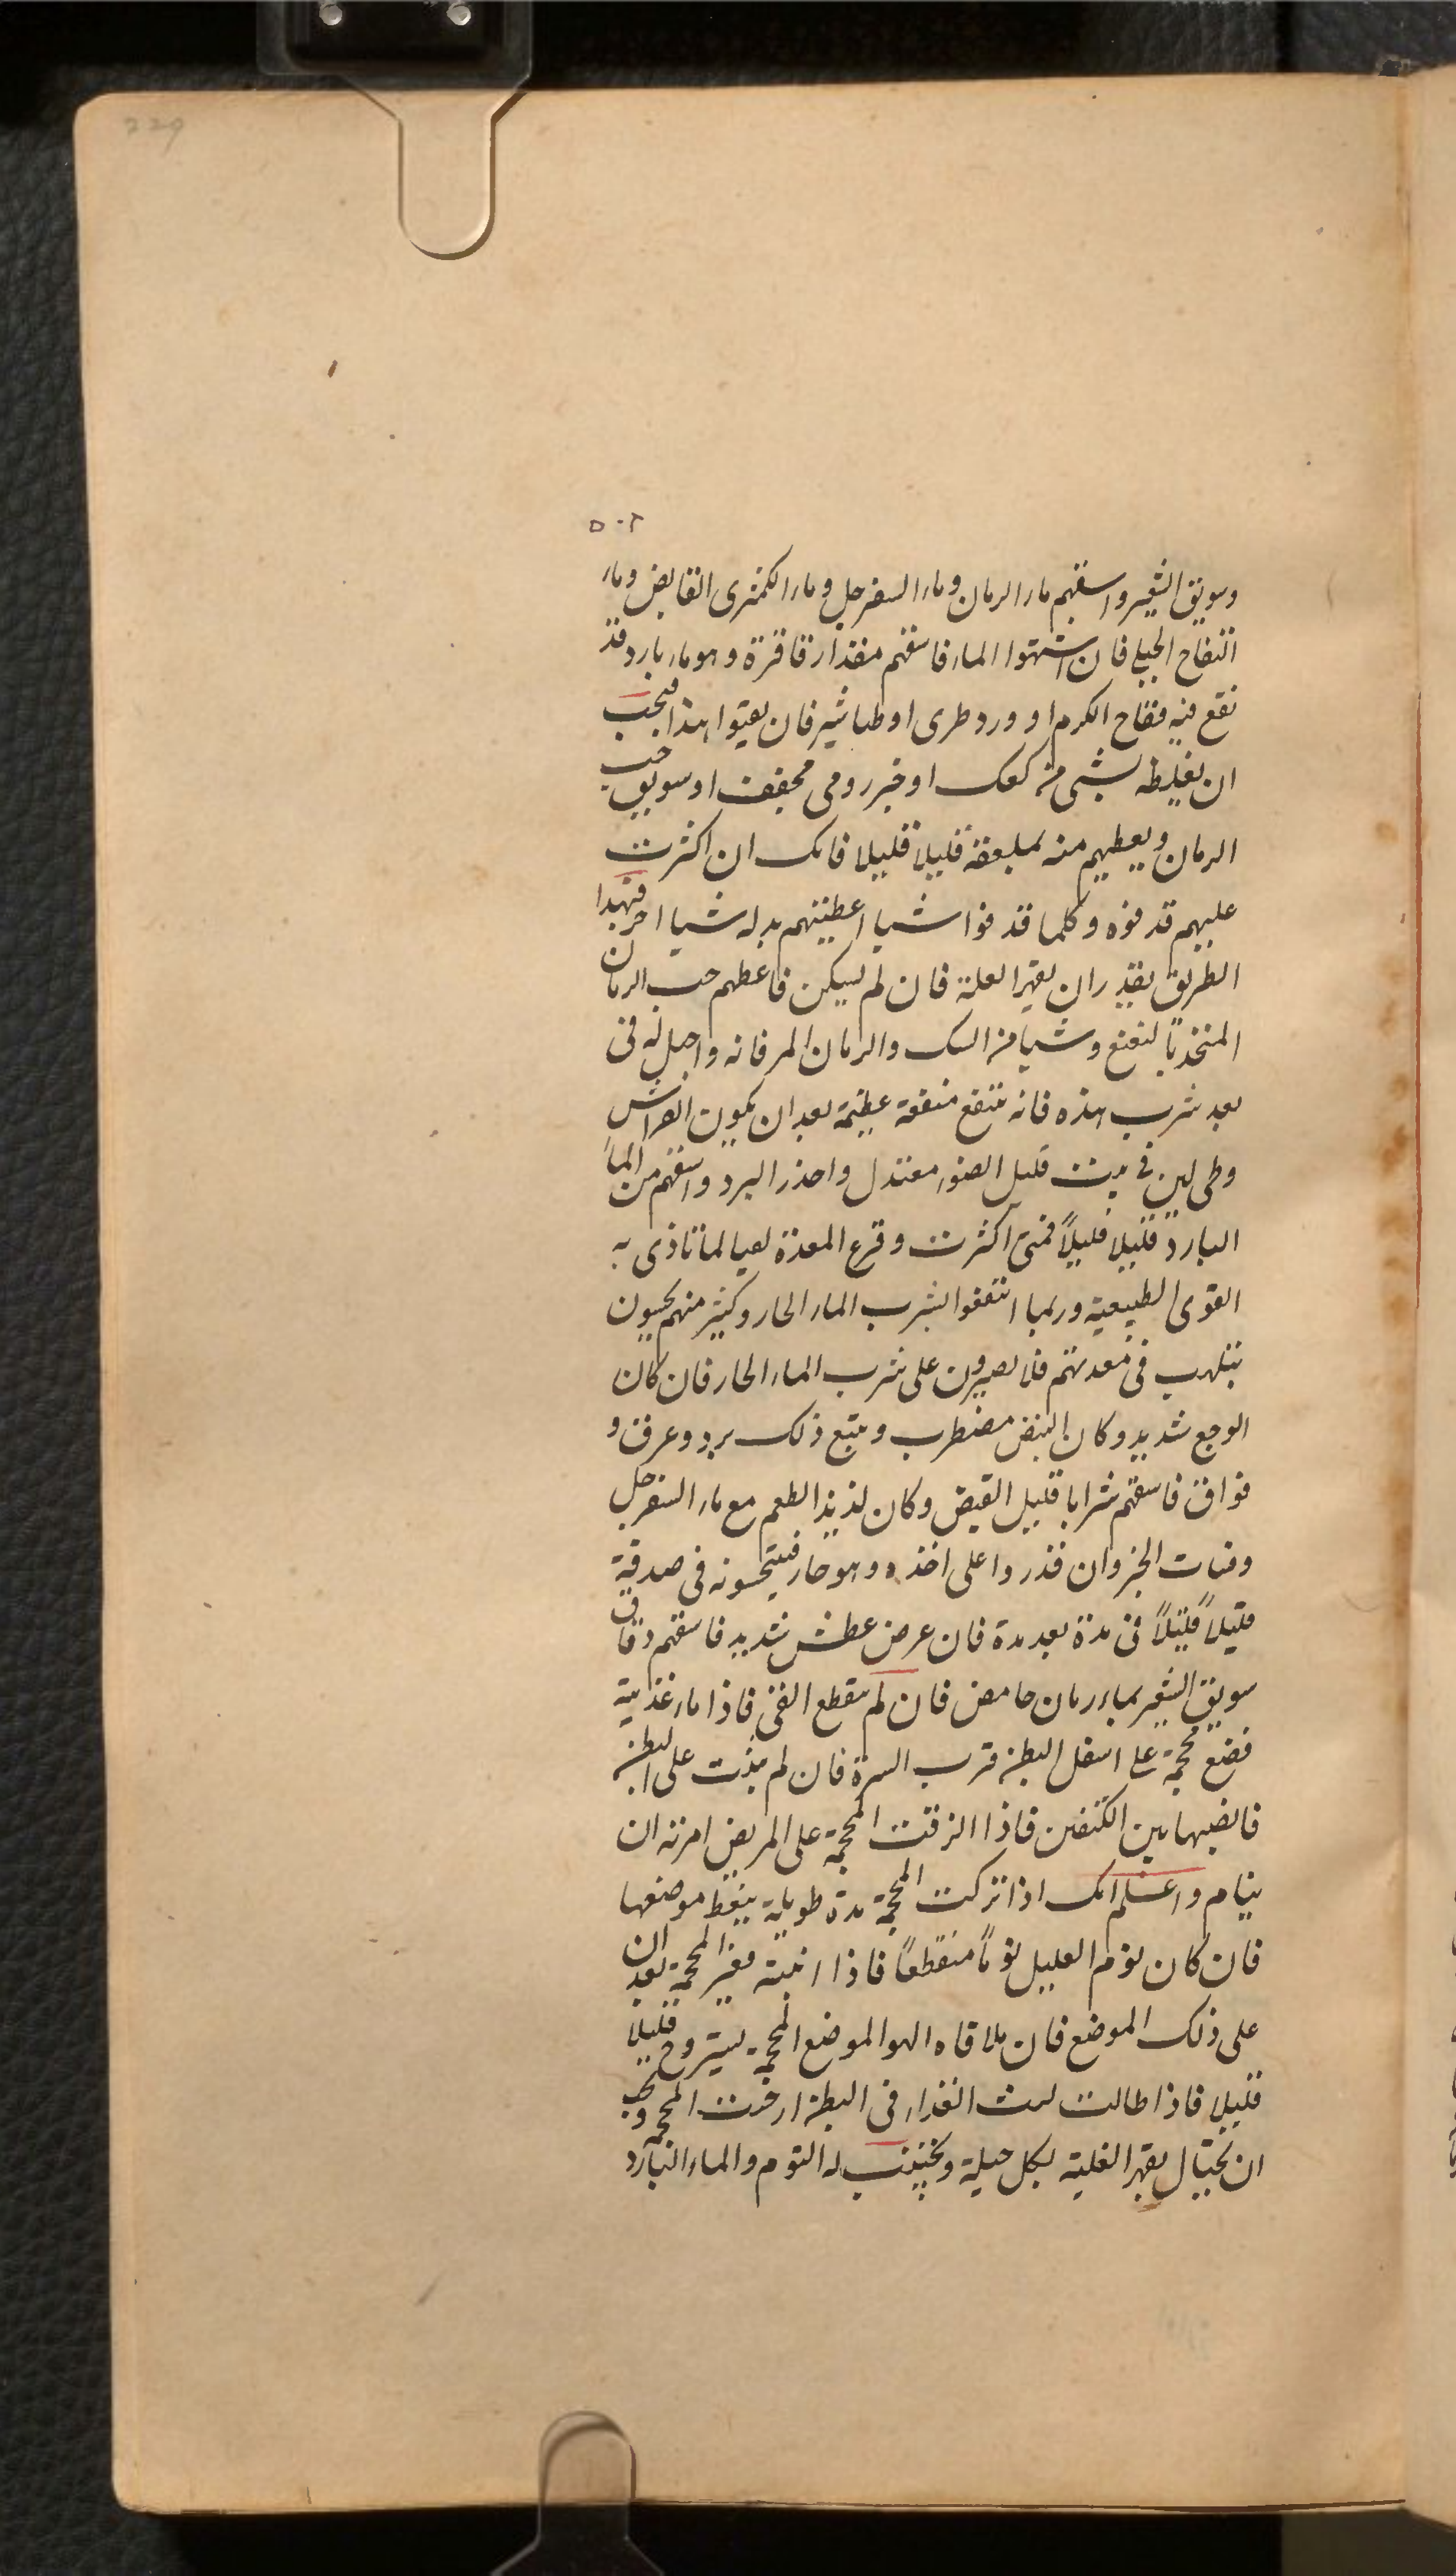 229
٥٠٢
وسويق الشعير واسقهم ماء الرمان وماء السفرجل وماء الكمثرى القابض وماء
التفاح الجبلى فان اشتهوا الماء فاسقهم مقدار قاقرة وهو ماء بارد قد
نقع فيه فقاح الكرم او ورد طرى او طباشير فان بقيوا بهذا فيجب
ان يغلظه بشى من كعك او خبز رومى مجفف او سويق حب
الرمان ويعطيهم منه بملعقة قليلا قليلا فانك ان اكثرت
عليهم قدفوه وكلما قدفوا شيا اعطيتهم بدله شيا اخر فبهدا
الطريق يقدر ان يقهر العلة فان لم يسكن فاعطهم حب الرمان
المتخذ بالنعنع وشيا من السك والرمان المر فانه واجل له فى
بعد شرب هذه فانه ينتفع منفعة عظيمة بعد ان يكون الفراش
وطى لين فى بيت قليل الضوء معتدل واحذر البرد واسقهم من الماء
البارد قليلا قليلاً فمتى اكثرت وقرع المعدة لعيا لما تاذى به
القوى الطبيعية وربما انتفعوا بشرب الماء الحار وكثير منهم يحسون
بتلهب فى معدتهم فلا يصبرون على شرب الماء الحار فان كان
الوجع شديد وكان النبض مضطرب ويتبع ذلك برد وعرق و
فواق فاسقهم شرابا قليل القبض وكان لذيذ الطعم مع ماء السفرجل
وفتات الخبز وان قدروا على اخذه وهو حار فيتحسونه فى صدقية
قليلاً قليلاً فى مدة بعد مدة فان عرض عطش شديد فاسقهم دقاق
سويق الشعير بماء رمان حامض فان لم ينقطع القى فاذا ماء غذيته
فضع محجمة على اسفل البطن قرب السرة فان لم يثبت على البطن
فانصبها بين الكتفين فاذا الزقت المحجمة على المريض امرته ان
ينام واعلم انك اذا تركت المحجمة مدة طويلة ينفط موضعها
فان كان نوم العليل نوماً منقطعاً فاذا انتبه فغير المحجمة بعد ان
على ذلك الموضع فان ملاقاه الهوا لموضع المحجمة يستروح قليلا
قليلا فاذا طالت لبث الغذاء فى البطن ارخت المحجمة ويجب
ان يحتال بقهر الغلبة بكل حيلة ويجتنب له النوم والماء البارد